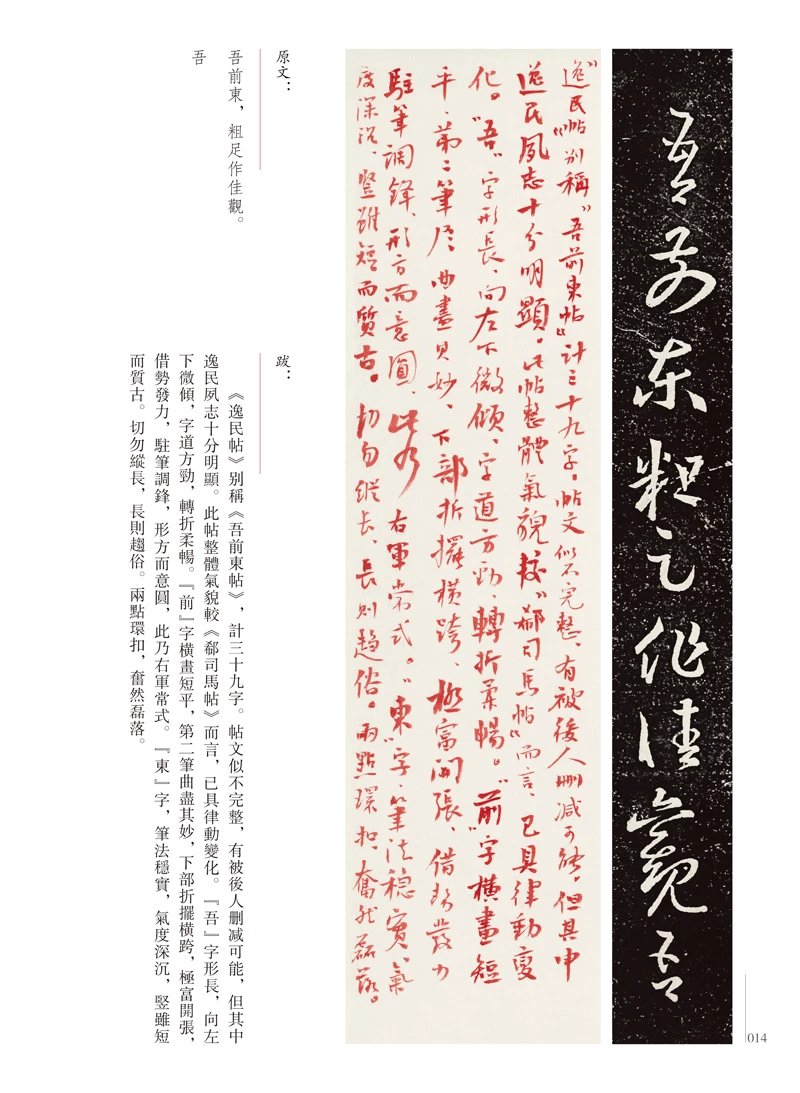 吾前東粗足作佳觀吾
“逸民帖”別稱“吾前東帖”計三十九字。帖文似不完整、有被後人删減可能，但其中
逸民夙志十分明顯。此帖整體氣貌較“郗司馬帖”而言、已具律動變
化。“吾”字形長、向左下微傾、字道方勁、轉折柔暢。“前”字橫畫短
平、第二筆曲盡其妙、下部折擺橫跨、極富開張、借勢發力
駐筆調鋒、形方而意圓、此乃右軍常式。“東”字、筆法穩實、氣
度深沉、豎雖短而質古。切勿縱長、長則趨俗。兩點環扣、奮然磊落。
原文：
吾前東，粗足作佳觀。
吾
跋：
《逸民帖》別稱《吾前東帖》，計三十九字。帖文似不完整，有被後人删減可能，但其中
逸民夙志十分明顯。此帖整體氣貌較《郗司馬帖》而言，已具律動變化。『吾』字形長，向左
下微傾，字道方勁，轉折柔暢。『前』字橫畫短平，第二筆曲盡其妙，下部折擺橫跨，極富開張，
借勢發力，駐筆調鋒，形方而意圓，此乃右軍常式。『東』字，筆法穩實，氣度深沉，竪雖短
而質古。切勿縱長，長則趨俗。兩點環扣，奮然磊落。
014